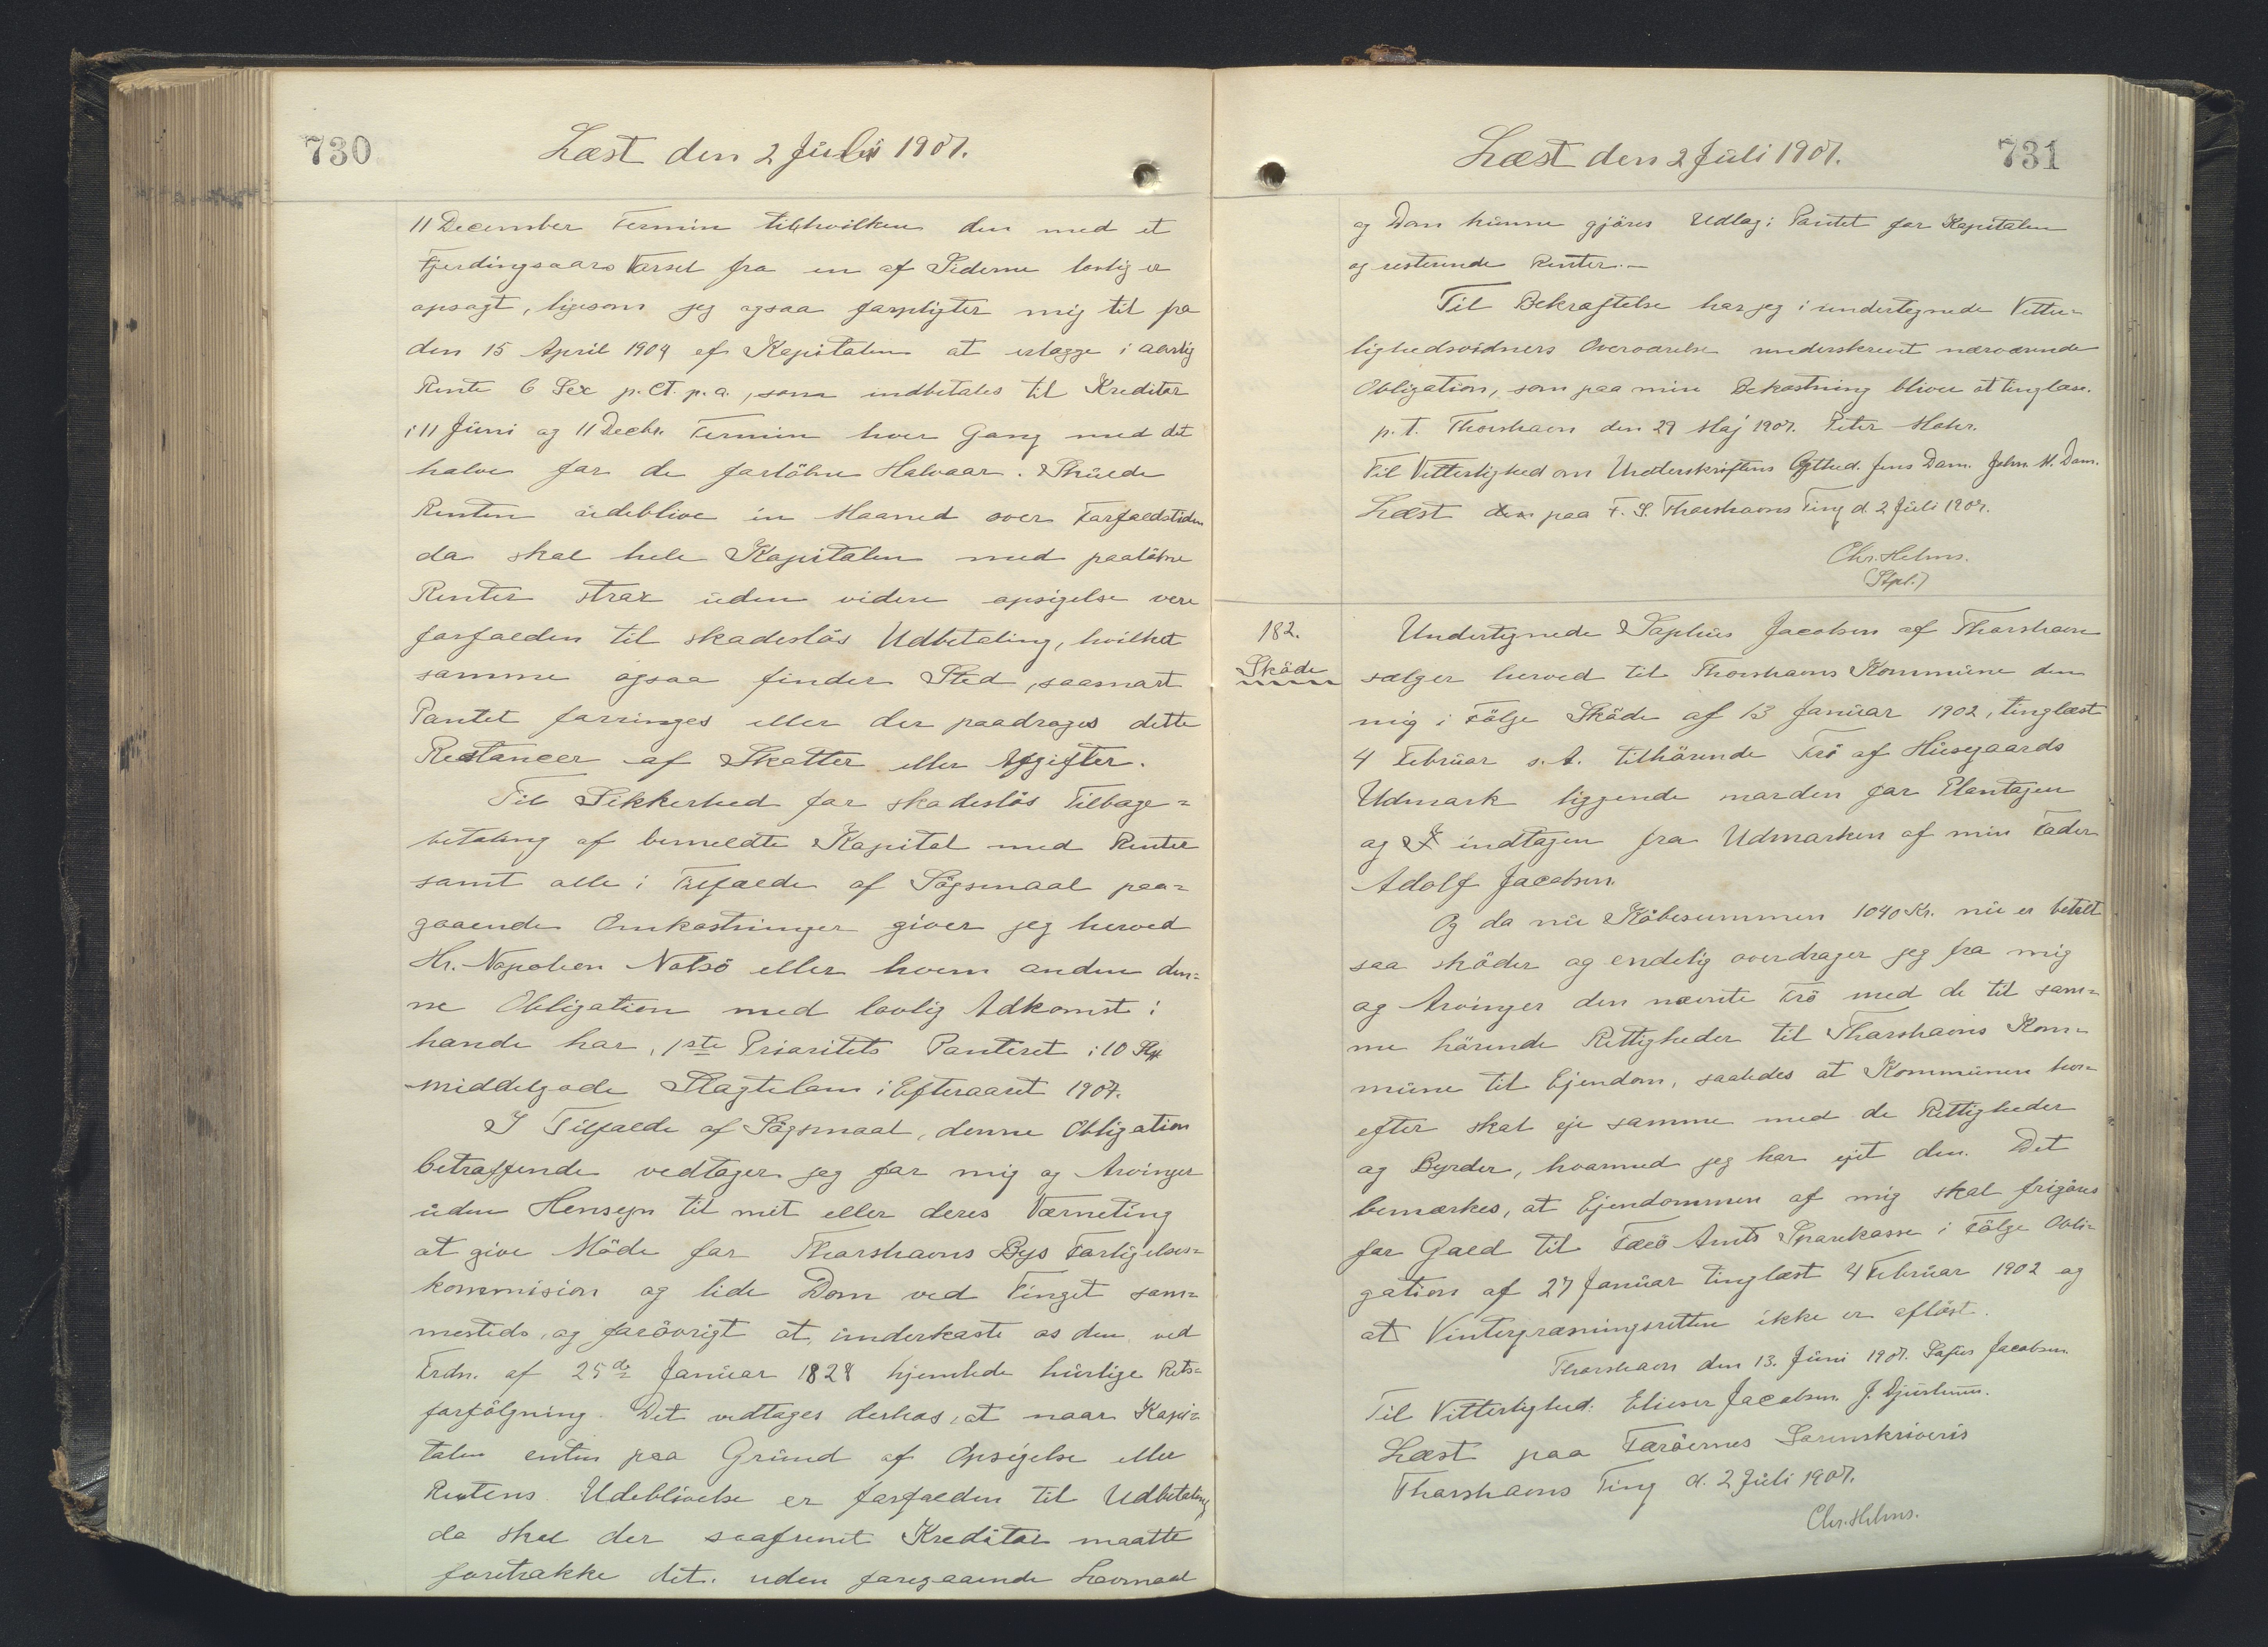 730
Læst den 2 Juli 1907.
11 December Termin tilhvilken den med et
Fjerdingsaars Varsel fra en af Siderne lovlig er
opsagt, ligesom jeg ogsaa forpligter mig til fra
den 15 April 1904 af Kapitalen at erlægge i aarlig
Rente 6 Sex p. Ct. p. a., som indbetales til Kreditor
i 11 Juni og 11 Decbr. Termin hver Gang med det
halve for de forløbne Halvaar. Skulde
Renten udeblive en Maaned over Forfaldstiden
da skal hele Kapitalen med paaløbne
Renter strax uden videre opsigelse være
forfalden til skadesløs Udbetaling, hvilket
samme ogsaa finder Sted, saasnart
Pantet forringes eller der paadrages dette
Restancer af Skatter eller Afgifter.
Til Sikkerhed for skadesløs Tilbage-
betaling af bemeldte Kapital med Renter
samt alle i Tilfælde af Søgsmaal paa-
gaaende Omkostninger giver jeg herved
Hr. Napoleon Nolsø eller hvem anden den-
ne Obligation med lovlig Adkomst i
hænde har, 1ste Prioritets Panteret i 10
middelgode Slagtelam i Efteraaret 1907.
I Tilfælde af Søgsmaal, denne Obligation
betræffende vedtager jeg for mig og Arvinger
uden Hensyn til mit eller deres Værneting
at give Møde for Thorshavns Bys Forligelses-
kommision og lide Dom ved Tinget sam-
mesteds, og forøvrigt at underkaste os den ved
Frdn. af 25de Januar 1828 hjemlede hurtige Rets-
forfølgning. Det vedtages derhos, at naar Kapi-
talen enten paa Grund af Opsigelse eller
Rentens Udeblivelse er forfalden til Udbetaling
da skal der saafremt Kreditor maatte
foretrække det. uden foregaaende Lovmaal
731
Læst den 2 Juli 1907.
og Dom kunne gjøres Udlæg i Pantet for Kapitalen
og resterende Renter.-
Til Bekræftelse har jeg i undertegnede Vitter-
lighedsvidners Overværelse underskrevet nærværende
Obligation, som paa min Bekostning bliver at tinglæse.
p. t. Thorshavn den 29 Maj 1907. Peter Mohr.
Til Vitterlighed om Underskriftens Ægthed. Jens Dam. John. M. Dam.
Læst paa F. S. Thorshavns Ting d. 2 Juli 1907.
Chr. Helms.
(Stpl.)
182.
Skøde
Undertegnede Saphus Jacobsen af Thorshavn
sælger herved til Thorshavns Kommune den
mig i Følge Skøde af 13 Januar 1902, tinglæst
4 Februar s. A. tilhørende Trø af Husegaards
Udmark liggende norden for Plantagen
og indtagen fra Udmarken af min Fader
Adolf Jacobsen.
Og da nu Købesummen 1040 Kr. nu er betalt
saa skøder og endelig overdrager jeg fra mig
og Arvinger den nævnte Trø med de til sam-
me hørende Rettigheder til Thorshavns Kom-
mune til Ejendom, saaledes at Kommunen her-
efter skal eje samme med de Rettigheder
og Byrder, hvormed jeg har ejet den. Det
bemærkes, at Ejendommen af mig skal frigøres
for Gæld til Færø Amts Sparekasse i Følge Obli-
gation af 27 Januar tinglæst 4 Februar 1902 og
at Vintergræsningsretten ikke er afløst.
Thorshavn den 13. Juni 1907. Safus Jacobsen.
Til Vitterlighed: Elieser Jacobsen. J. Djurhuus.
Læst paa Færøernes Sorenskriveris
Thorshavns Ting d. 2 Juli 1907.
Chr. Helms.